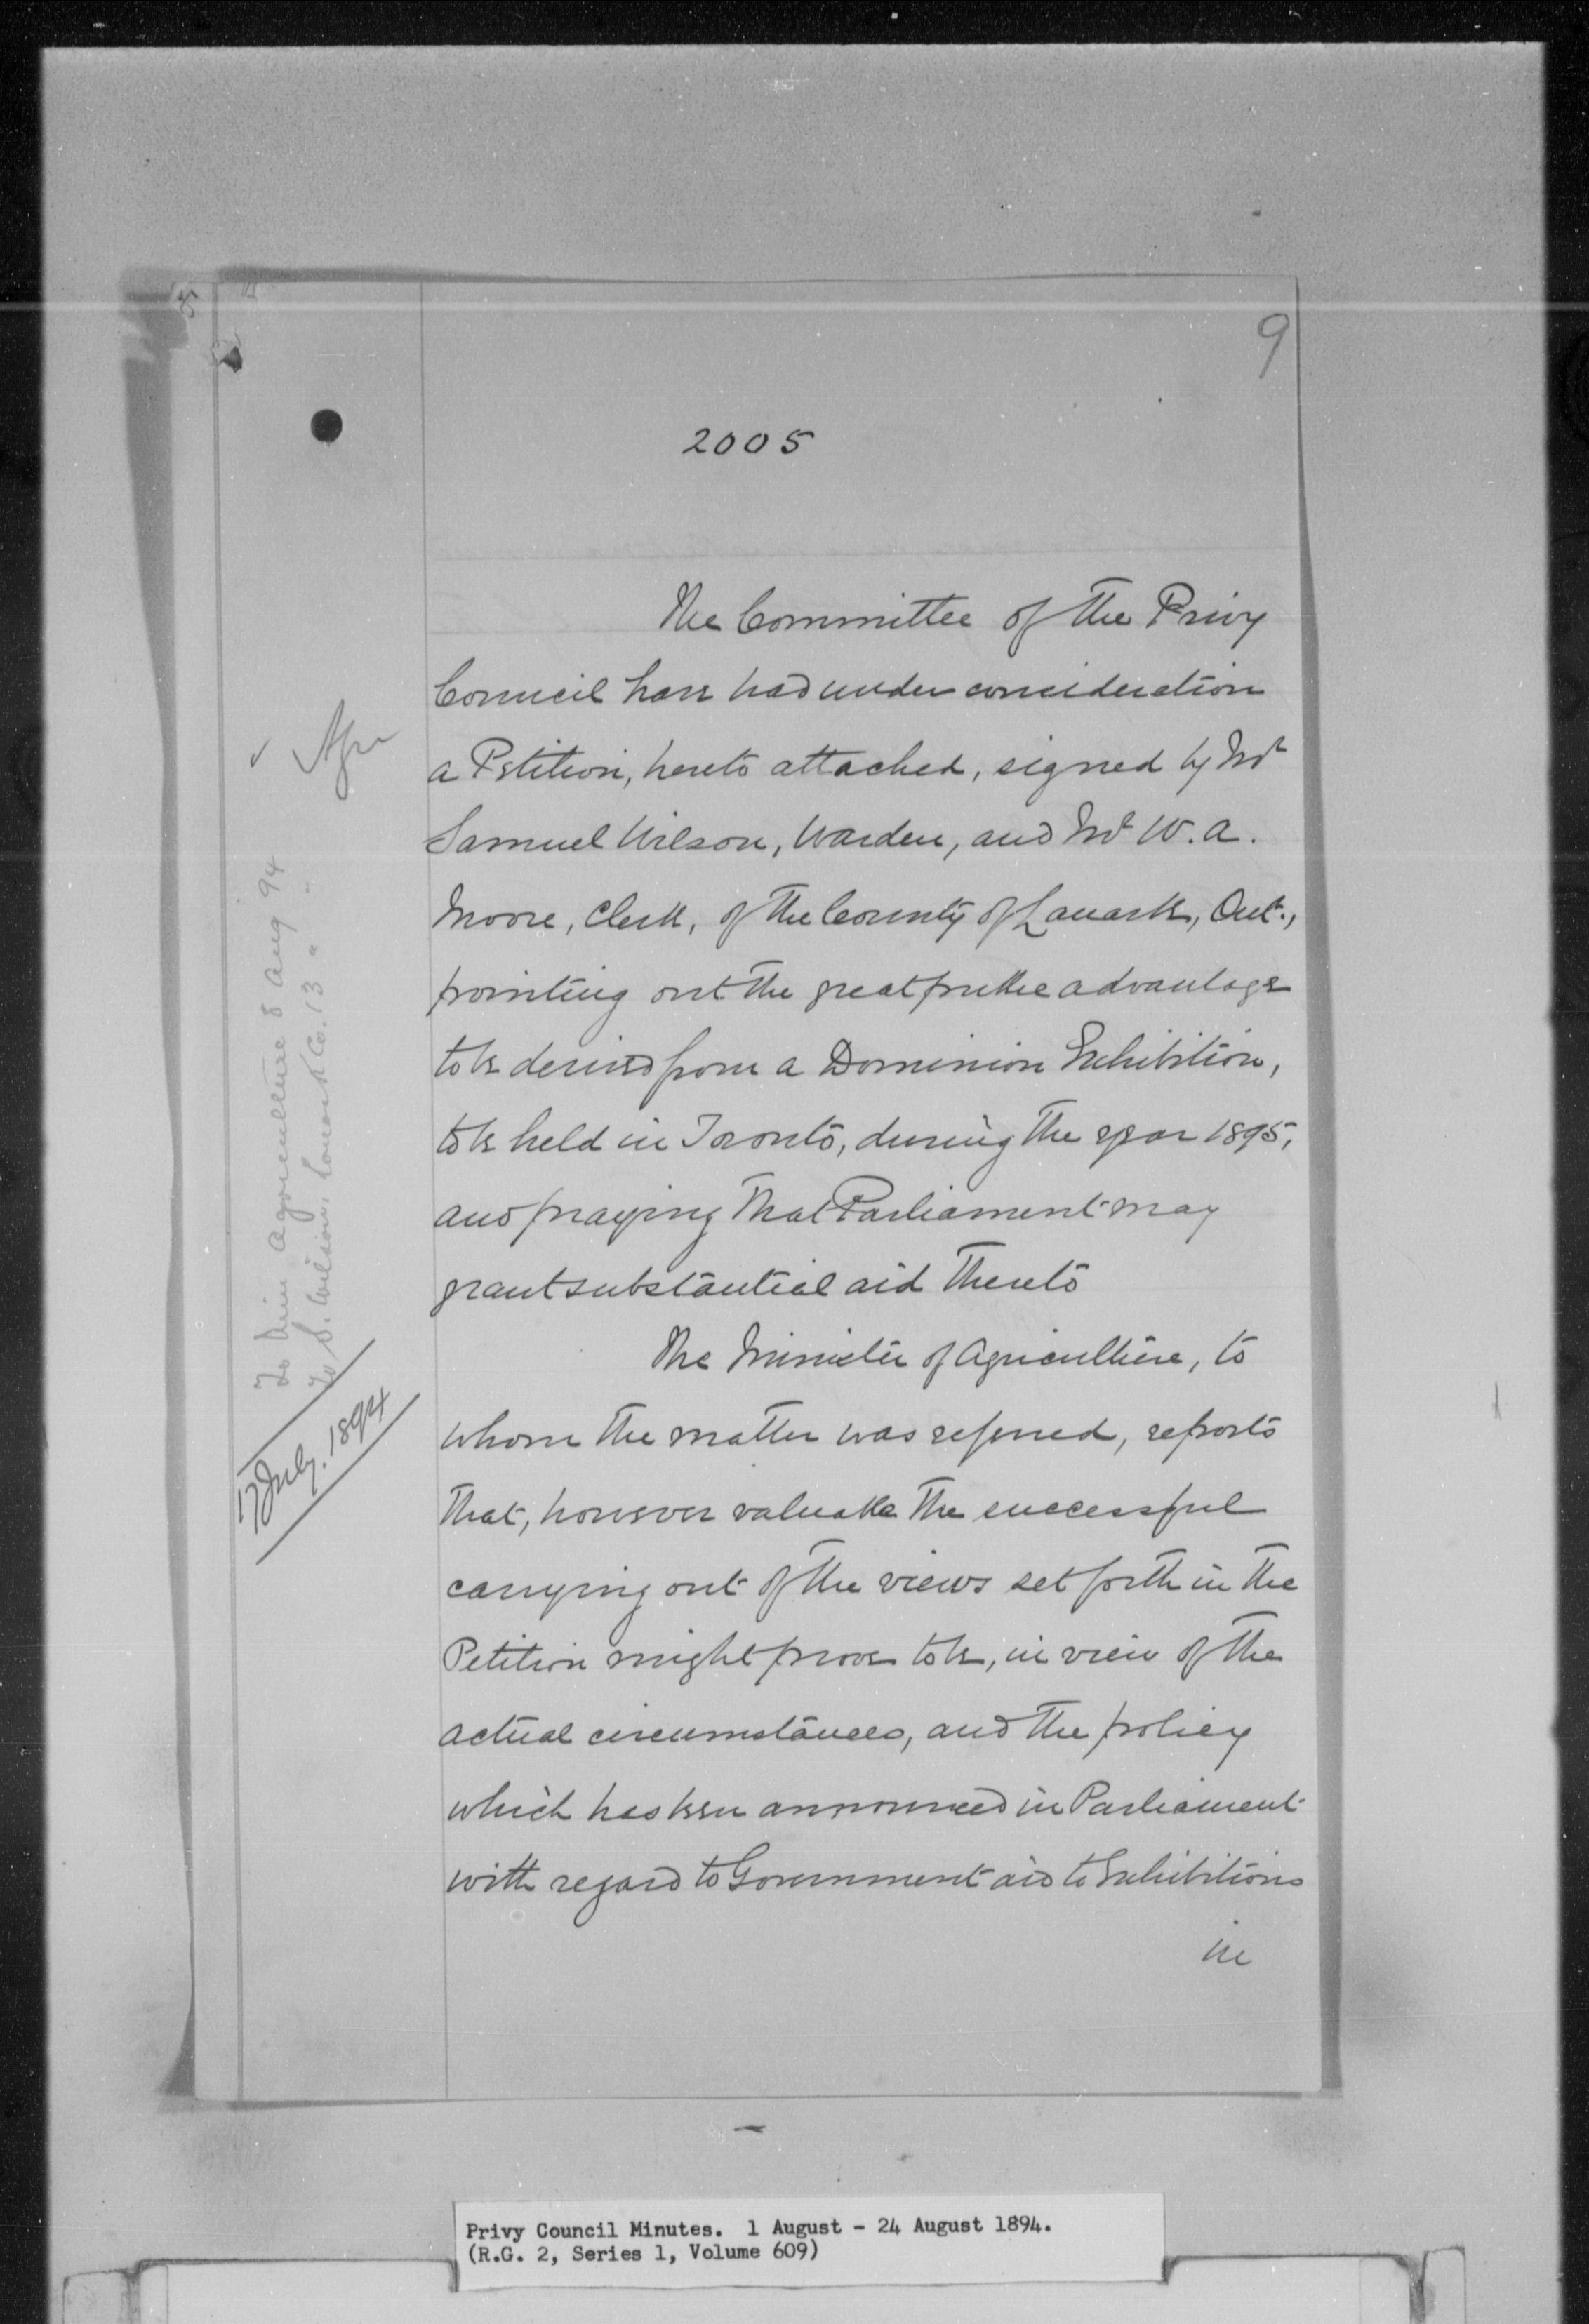 9
2005
The Committee of the Privy
Council have had under consideration
a Petition, hereto attached, signed by Mr
Samuel Wilson, Warden, and Mr W. A.
Moore, Clerk, of the County of Lanark, Ont.,
pointing out the great public advantage
to be derived from a Dominion Exhibition,
to be held in Toronto, during the year 1895,
and praying that Parliament may
grant substantial aid thereto
The Minister of Agriculture, to
whom the matter was referred, reports
that, however valuable the successful
carrying out of the views set forth in the
Petition might prove to be, in view of the
actual circumstances, and the policy
which has been announced in Parliament
with regard to Government aid to Exhibitions
in
Agr
To Min Agriculture 8 Aug 94
To S. Wilson, Lanark Co. 13 " "
17 July. 1894
Privy Council Minutes. 1 August - 24 August 1894.
(R.G. 2, Series 1, Volume 609)